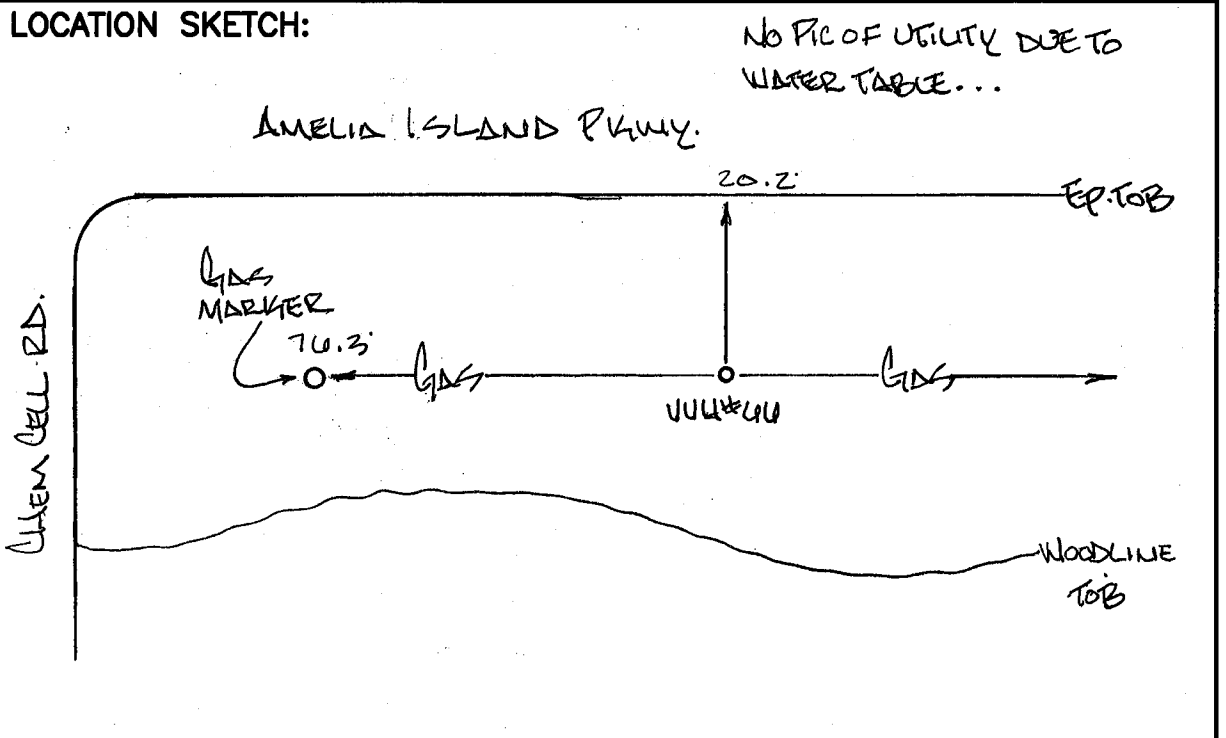 LOCATION SKETCH:
NO PIC OF UTILITY DUE TO
WATER TABLE...
AMELIA ISLAND PKWY.
20.2'
EP. TOB
GAS
MARKER
76.3'
GAS
GAS
VVH#46
CHEM CELL RD.
WOODLINE
TOB